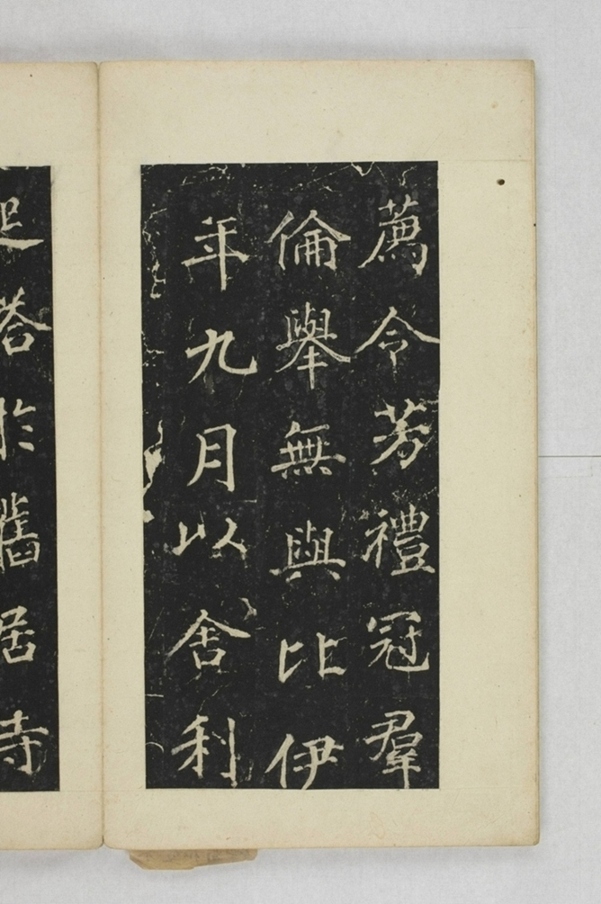 薦令芳禮冠羣
倫舉無與比伊
年九月以舍利
起塔於舊居寺